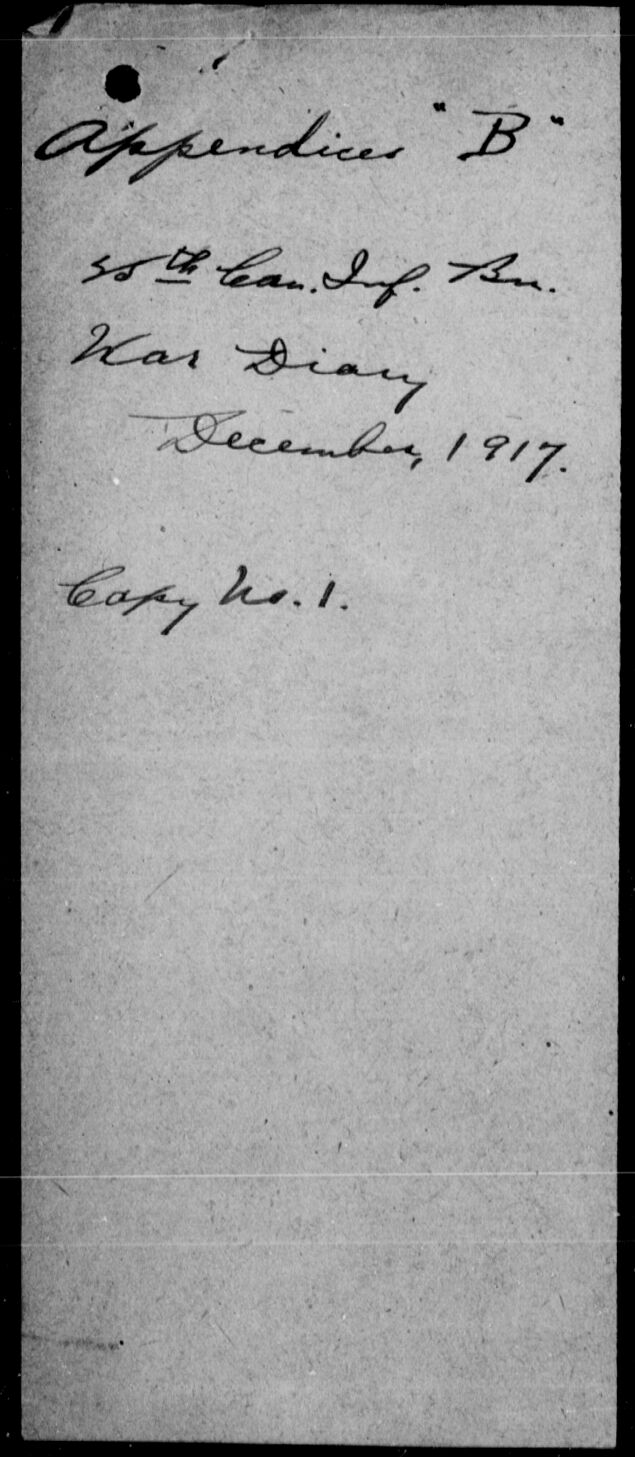 Appendices "B"
Can. Inf. Bn.
War Diary
December, 1917.
Copy No. 1.